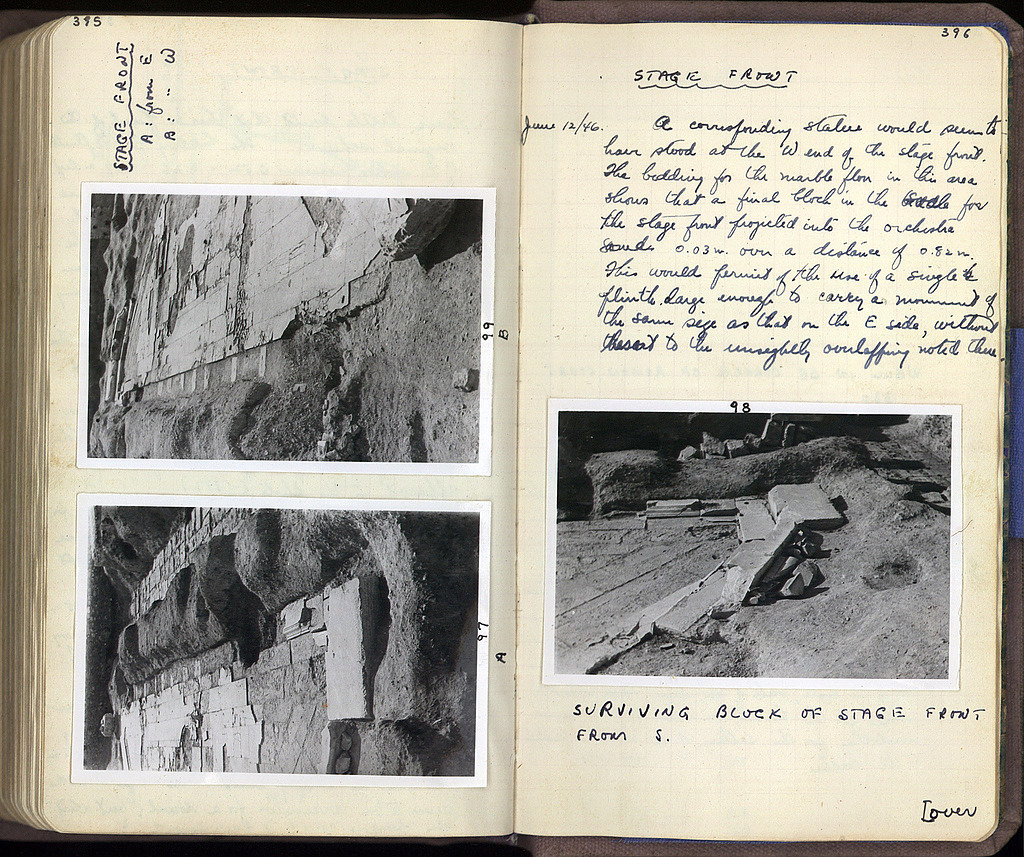 395
STAGE FRONT
A: from E
B: " W
99
B
97
A
396
STAGE FRONT
June 12/46. A corresponding statue would seem to
have stood at the W end of the stage front.
The bedding for the marble floor in this area
shows that a final block in the for
the stage front projected into the orchestra
0.03 m. over a distance of 0.82 m.
This would permit of the use of a single
plinth large enough to carry a monument of
the same size as that on the E side, without
to the unsightly overlapping noted there.
98
SURVIVING BLOCK OF STAGE FRONT
FROM S.
[over